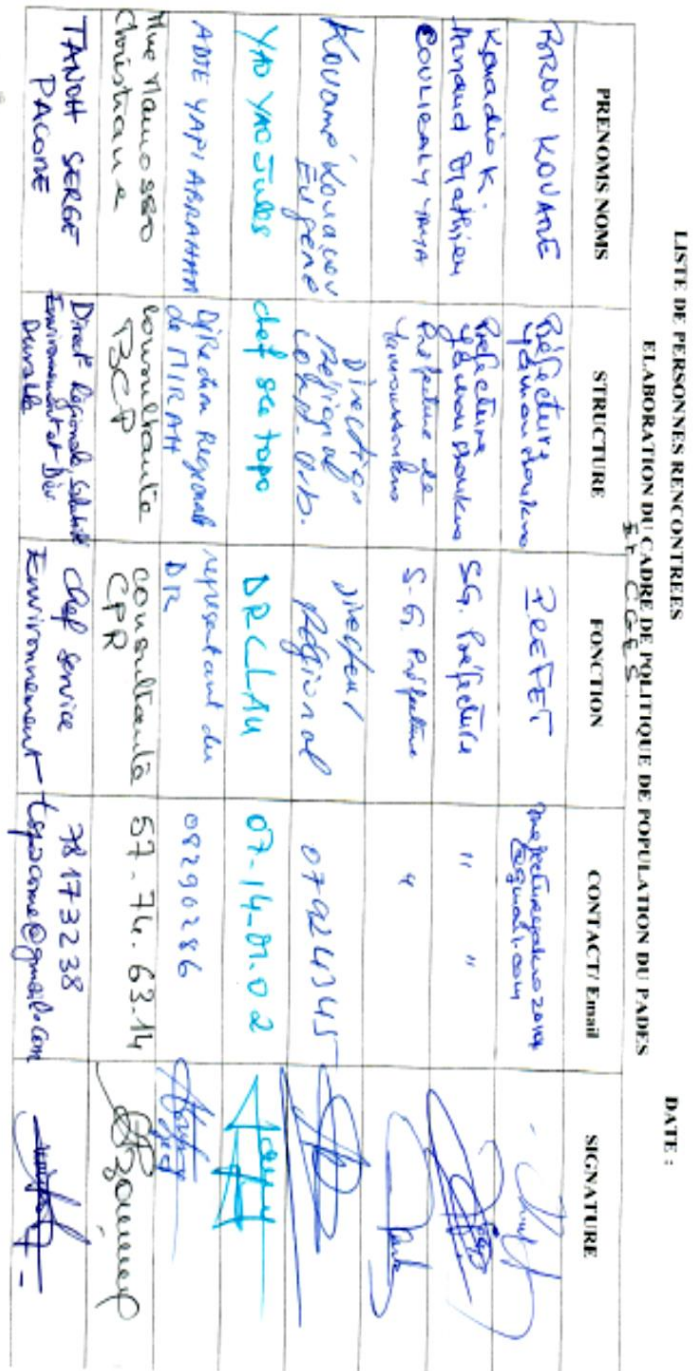 LISTE DE PERSONNES RENCONTREES
ELABORATION DU CADRE DE POLITIQUE DE POPULATION DU PADES
ET CGES
DATE :
PRENOMS NOMS STRUCTURE FONCTION CONTACT/ Email SIGNATURE
BROU KOUAME Préfecture Yamoussoukro PREFET @gmail.com
Kouadio K. Arnaud Mathieu Préfecture Yamoussoukro SG. Préfecture " "
COULIBALY YAYA Préfecture de Yamoussoukro S.G. Préfecture "
Kouamé Kouakou Eugène Direction Régional Directeur Régional 07924345
YAO YAO Jules chef sce topo DRCLAU 07-14-01.02
ADIE YAPI ABRAHAM Direction Regional de MIRAH representant du DR 08290286
Mme Christiane consultante P3CP consultante CPR 57-74.63.14
TANOH SERGE PACOME Direct° Régionale Salubrité Environnement et Dév Durable Chef service Environnement 78173238
tspacome@gmail.com